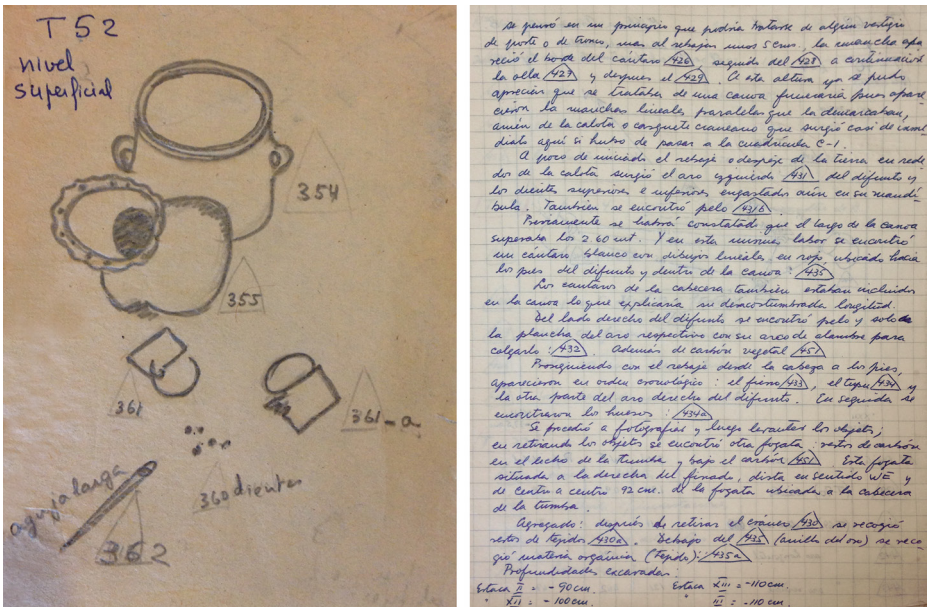 T 52
nivel
superficial
354
355
361
361-a
360 dientes
aguja larga
362
se pensó en un principio que podría tratarse de algún vestigio
de poste o de tronco, mas al rebajar unos 5 cms. la mancha apa
reció el borde del cántaro 426 seguido del 428 a continuación
la olla 427 y despues el 429. A esta altura ya se pudo
apreciar que se trataba de una canoa funeraria pues apare-
cieron la manchas lineales paralelas que la demarcaban,
amén de la calota o casquete craneano que surgió casi de inme
diato aquí si hubo de pasar a la cuadrícula C-1.
A poco de iniciado el rebaje o despeje de la tierra en rede
dor de la calota surgió el aro izquierdo 431 del difunto y
los dientes superiores e inferiores engastados aún en su mandí-
bula. También se encontró pelo 431b.
Previamente se había constatado que el largo de la canoa
superaba los 2.60 mt. Y en esta misma labor se encontró
un cántaro blanco con dibujos lineales en rojo ubicado hacia
los pies del difunto y dentro de la canoa: 435
Los cántaros de la cabecera también estaban incluídos
en la canoa lo que explicaría su desacostumbrada longitud.
Del lado derecho del difunto se encontró pelo y solo
la plancha del aro respectivo con su arco de alambre para
colgarlo: 432. Además de carbón vegetal 451
Prosiguiendo con el rebaje desde la cabeza a los pies,
aparecieron en orden cronológico: el fierro 433, el tupu 434 y
la otra parte del aro derecho del difunto. En seguida se
encontraron los huesos: 434a
Se procedió a fotografiar y luego levantar los objetos;
en retirando los objetos se encontró otra fogata: restos de carbón
en el lecho de la tumba y bajo el carbón 451 Esta fogata
situada a la derecha del finado, dista en sentido WE y
de centro a centro 92 cm. de la fogata ubicada a la cabecera
de la tumba.
Agregado: después de retirar el cráneo 430 se recogió
restos de tejidos 430a. Debajo del 435 (anillo del oro) se reco
gió materia orgánica (Tejido): 435a
Profundidades excavadas:
Estaca II = -90 cm. Estaca XIII = -110 cm.
" XII = -100 cm. " III = -110 cm.